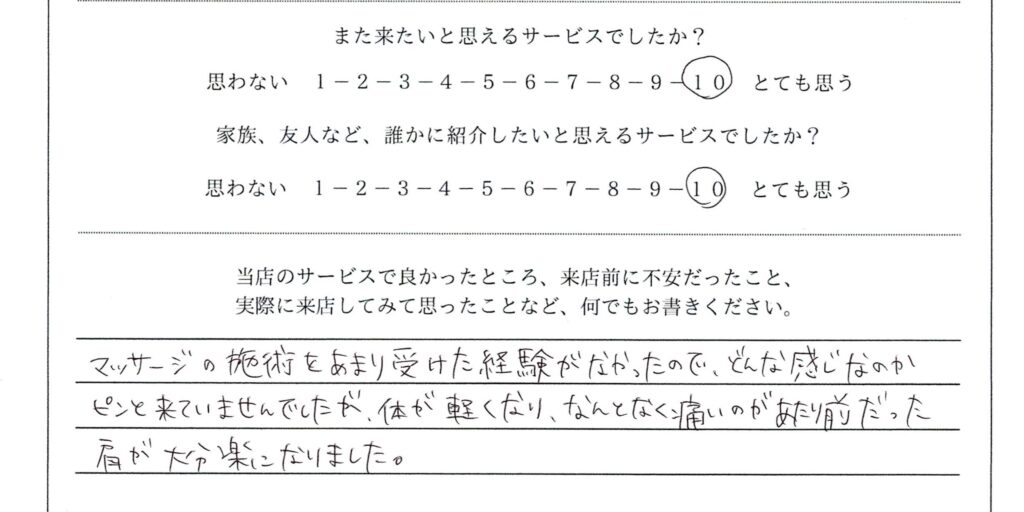 また来たいと思えるサービスでしたか？
思わない 1－2－3－4－5－6－7－8－9－10 とても思う
家族、友人など、誰かに紹介したいと思えるサービスでしたか？
思わない 1－2－3－4－5－6－7－8－9－10 とても思う
当店のサービスで良かったところ、来店前に不安だったこと、
実際に来店してみて思ったことなど、何でもお書きください。
マッサージの施術をあまり受けた経験がなかったので、どんな感じなのか
ピンと来ていませんでしたが、体が軽くなり、なんとなく痛いのがあたり前だった
肩が大分楽になりました。